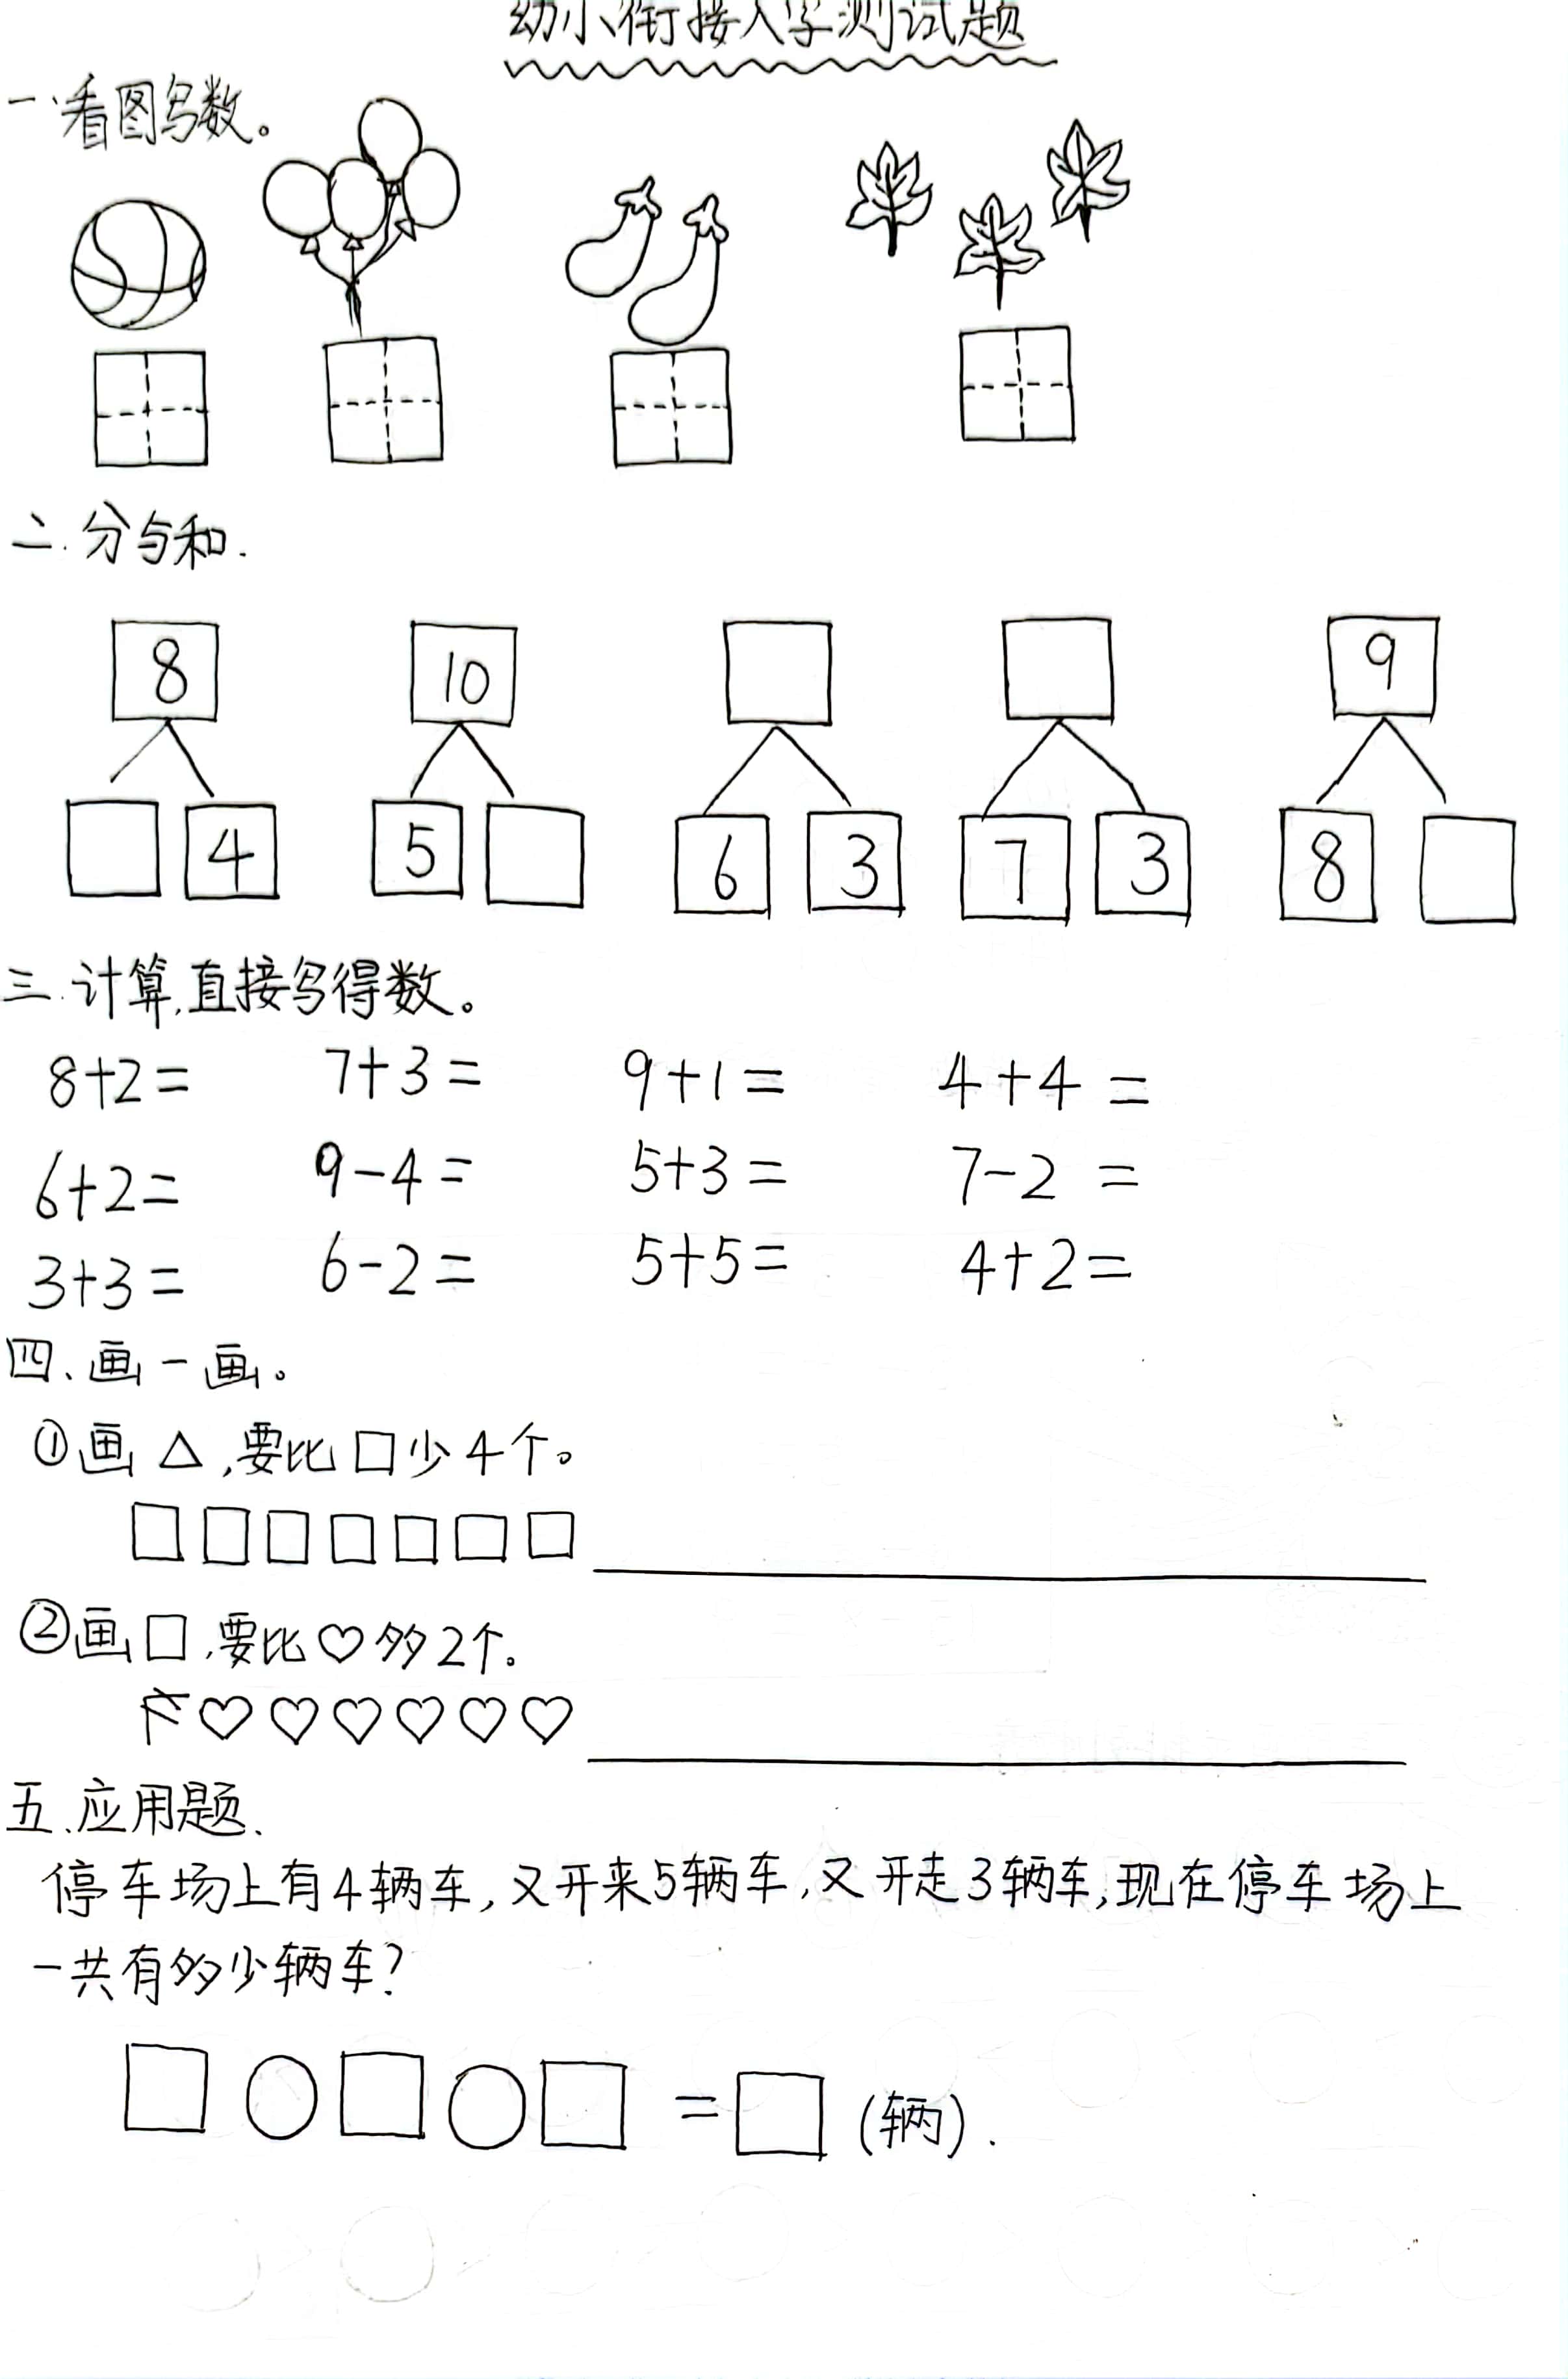 幼小衔接入学测试题
一、看图写数。
二.分与和.
8 10 9
4 5 6 3 7 3 8
三.计算,直接写得数。
8+2= 7+3= 9+1= 4+4=
6+2= 9-4= 5+3= 7-2=
3+3= 6-2= 5+5= 4+2=
四、画一画。
①画△,要比□少4个。
□□□□□□□
②画□,要比♡多2个。
♡♡♡♡♡♡
五、应用题.
停车场上有4辆车,又开来5辆车,又开走3辆车,现在停车场上
一共有多少辆车?
□○□○□=□(辆).